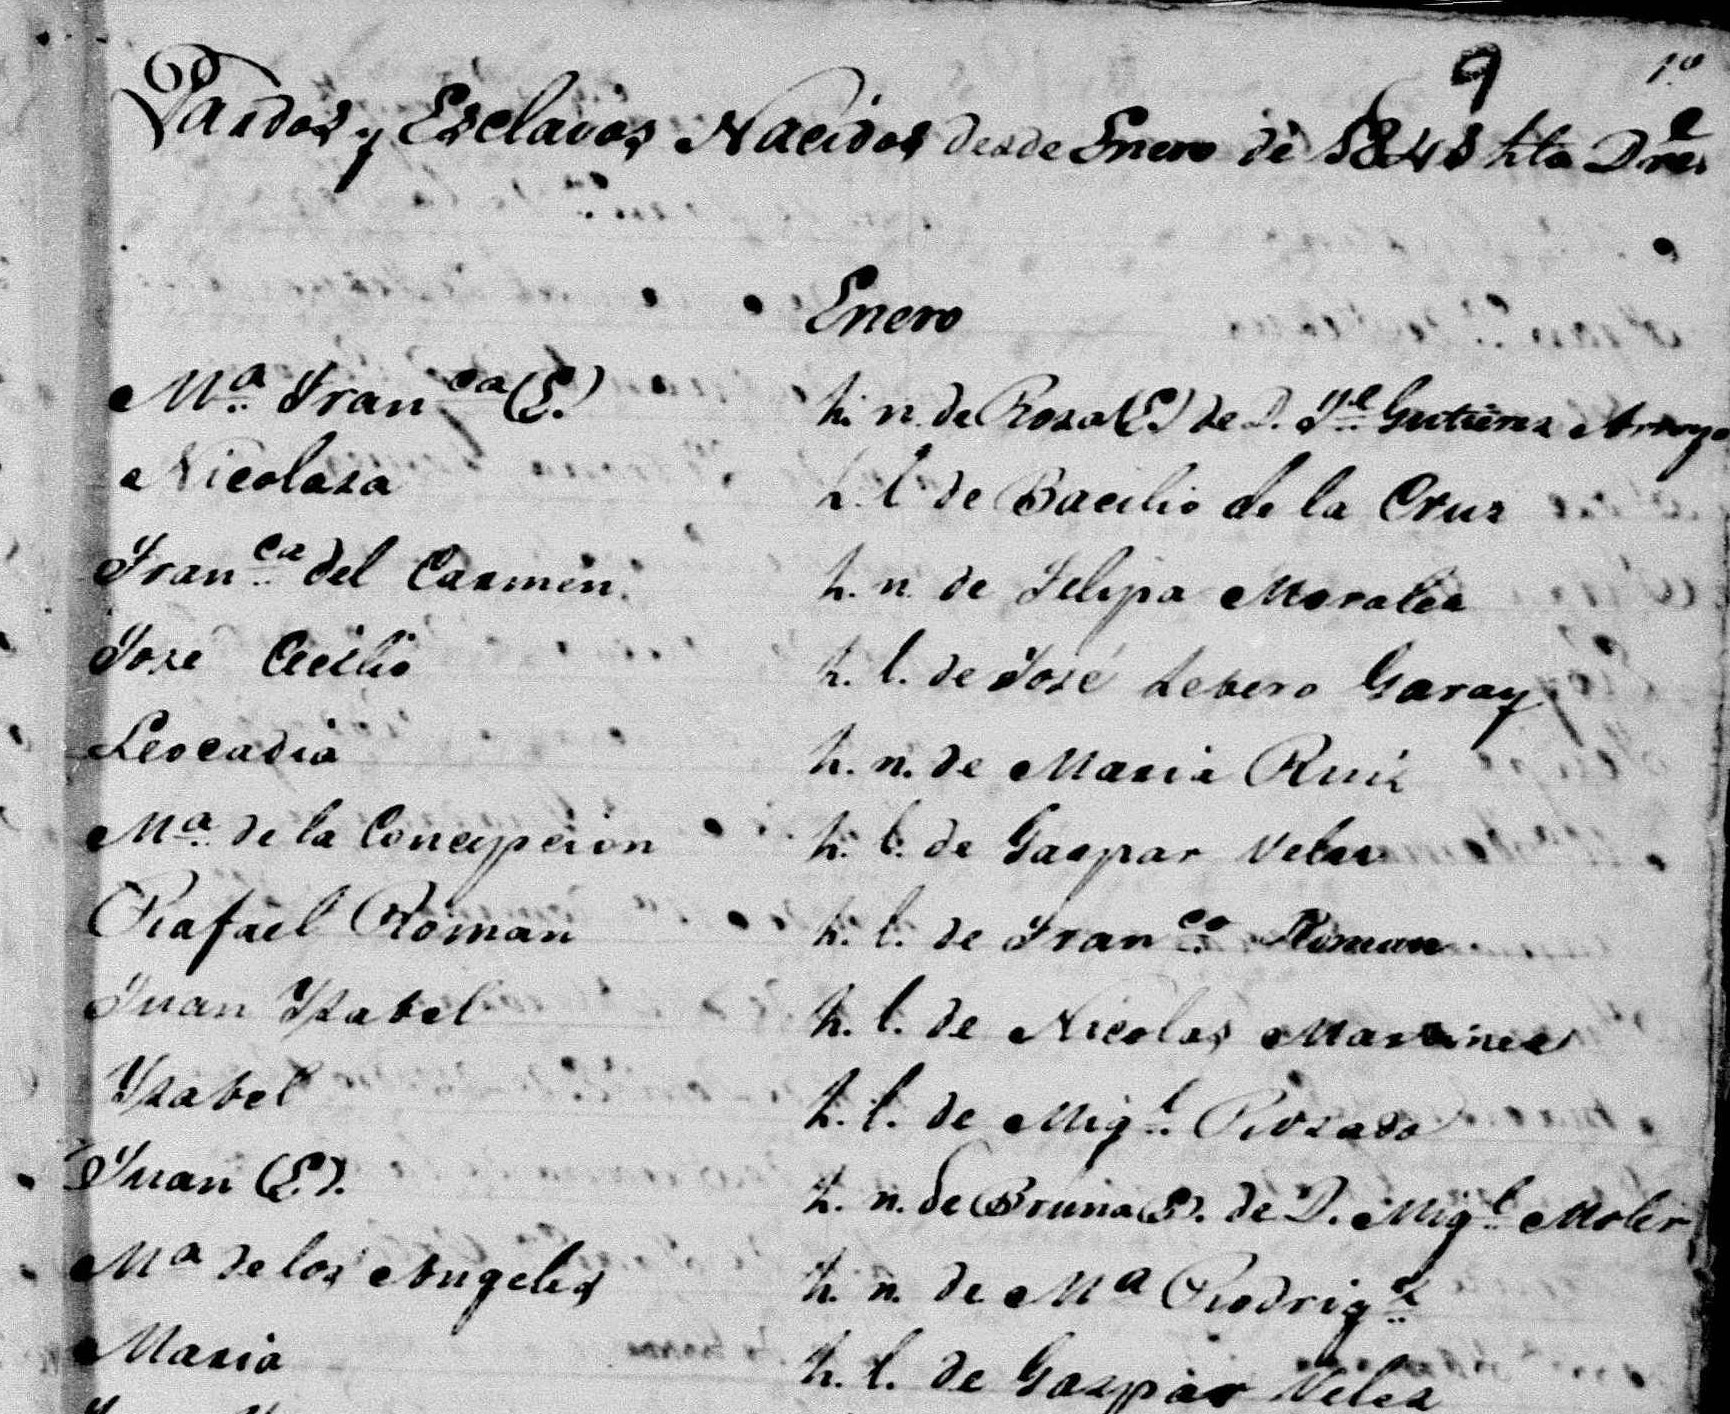 9 1º
Pardos y Esclavos Nacidos desde Enero de 1848 hta Dre
Enero
Mª Franca (E.) h. n. de Rosa (E.) de D. Je Gutierrez Arroyo
Nicolasa h. l. de Bacilio de la Cruz
Franca del Carmen. h. n. de Felipa Morales
José Cecilio h. l. de José Lebero Garay
Leocadia h. n. de Maria Ruiz
Mª de la Concepcion h. l. de Gaspar Velez
Rafael Roman h. l. de Franco Roman
Juan Ysabel h. l. de Nicolas Martinez
Ysabel h. l. de Migl Rosado
Juan (E). h. n. de Bruna (E). de D. Migl Moler
Mª de los Angeles h. n. de Mª Rodrigz
Maria h. l. de Gaspar Velez